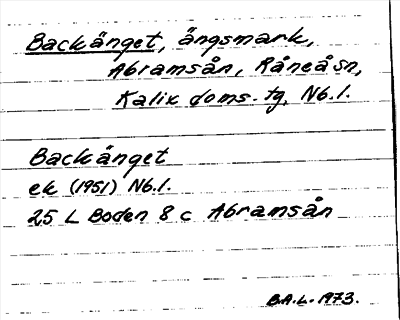 Backänget, ängsmark,
Abramsån, Råneå sn,
Kalix doms. tg, Nb.l.
Backänget
ek (1951) Nb.l.
25 L Boden 8 c Abramsån
B.A.L. 1973.